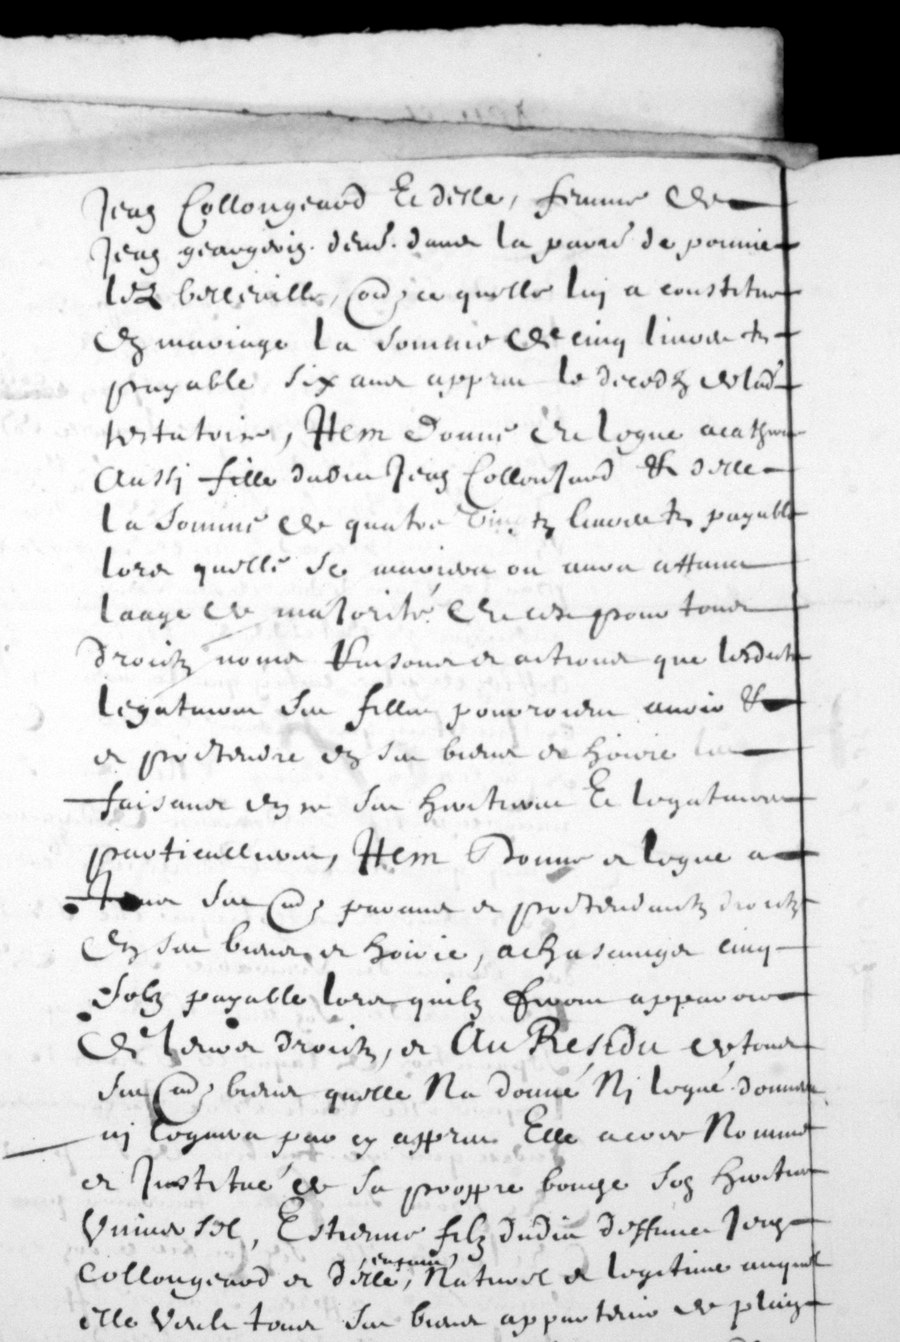 Jean Collongeard Et delle, femme de
Jean geangoin. demt. dans la parroe. de pommie
lez belleville, outre ce quelle luy a constitue
En mariage la somme de cinq livres ts
payable six ans appres le deceds de lad.
testatrice, Item Donne et legue a
Aussi fille dudit Jean Collonjard & delle
la somme de quatre vingtz livres ts payable
lors quelle se mariera ou aura attaint
laage de majorité Et ce pour tous
droictz noms raisons et actions que lesdictes
legataires ses filles pourroient avoir &
et pretendre en ses biens et hoirie les
faisant en ce ses heritieres Et legataires
particullieres, Item Donne et legue a
tous ses autres parans et pretendantz droictz
En ses biens et hoirie, a chascung cinq
solz payable lors quilz feront apparoir
de leurs droictz, et Au Residu de tous
ses autres biens quelle Na donné Nj legué donnera
nj leguera par cy appres Elle a Nommé
et Jnstitué de sa proppre bouche son heritier
Vniversel, Estienne filz dudit deffunct Jean
Collongeard et delle, Naturel et legitime auquel
elle veult tous ses biens appartenir de plain